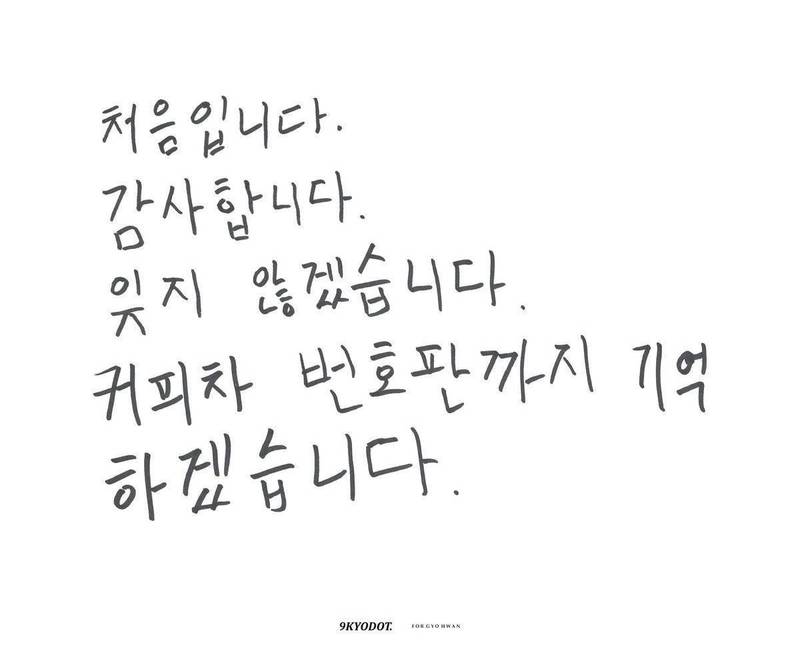 처음입니다.
감사합니다.
잊지 않겠습니다.
커피차 번호판까지 기억
하겠습니다.
9KYODOT. FOR GYO HWAN